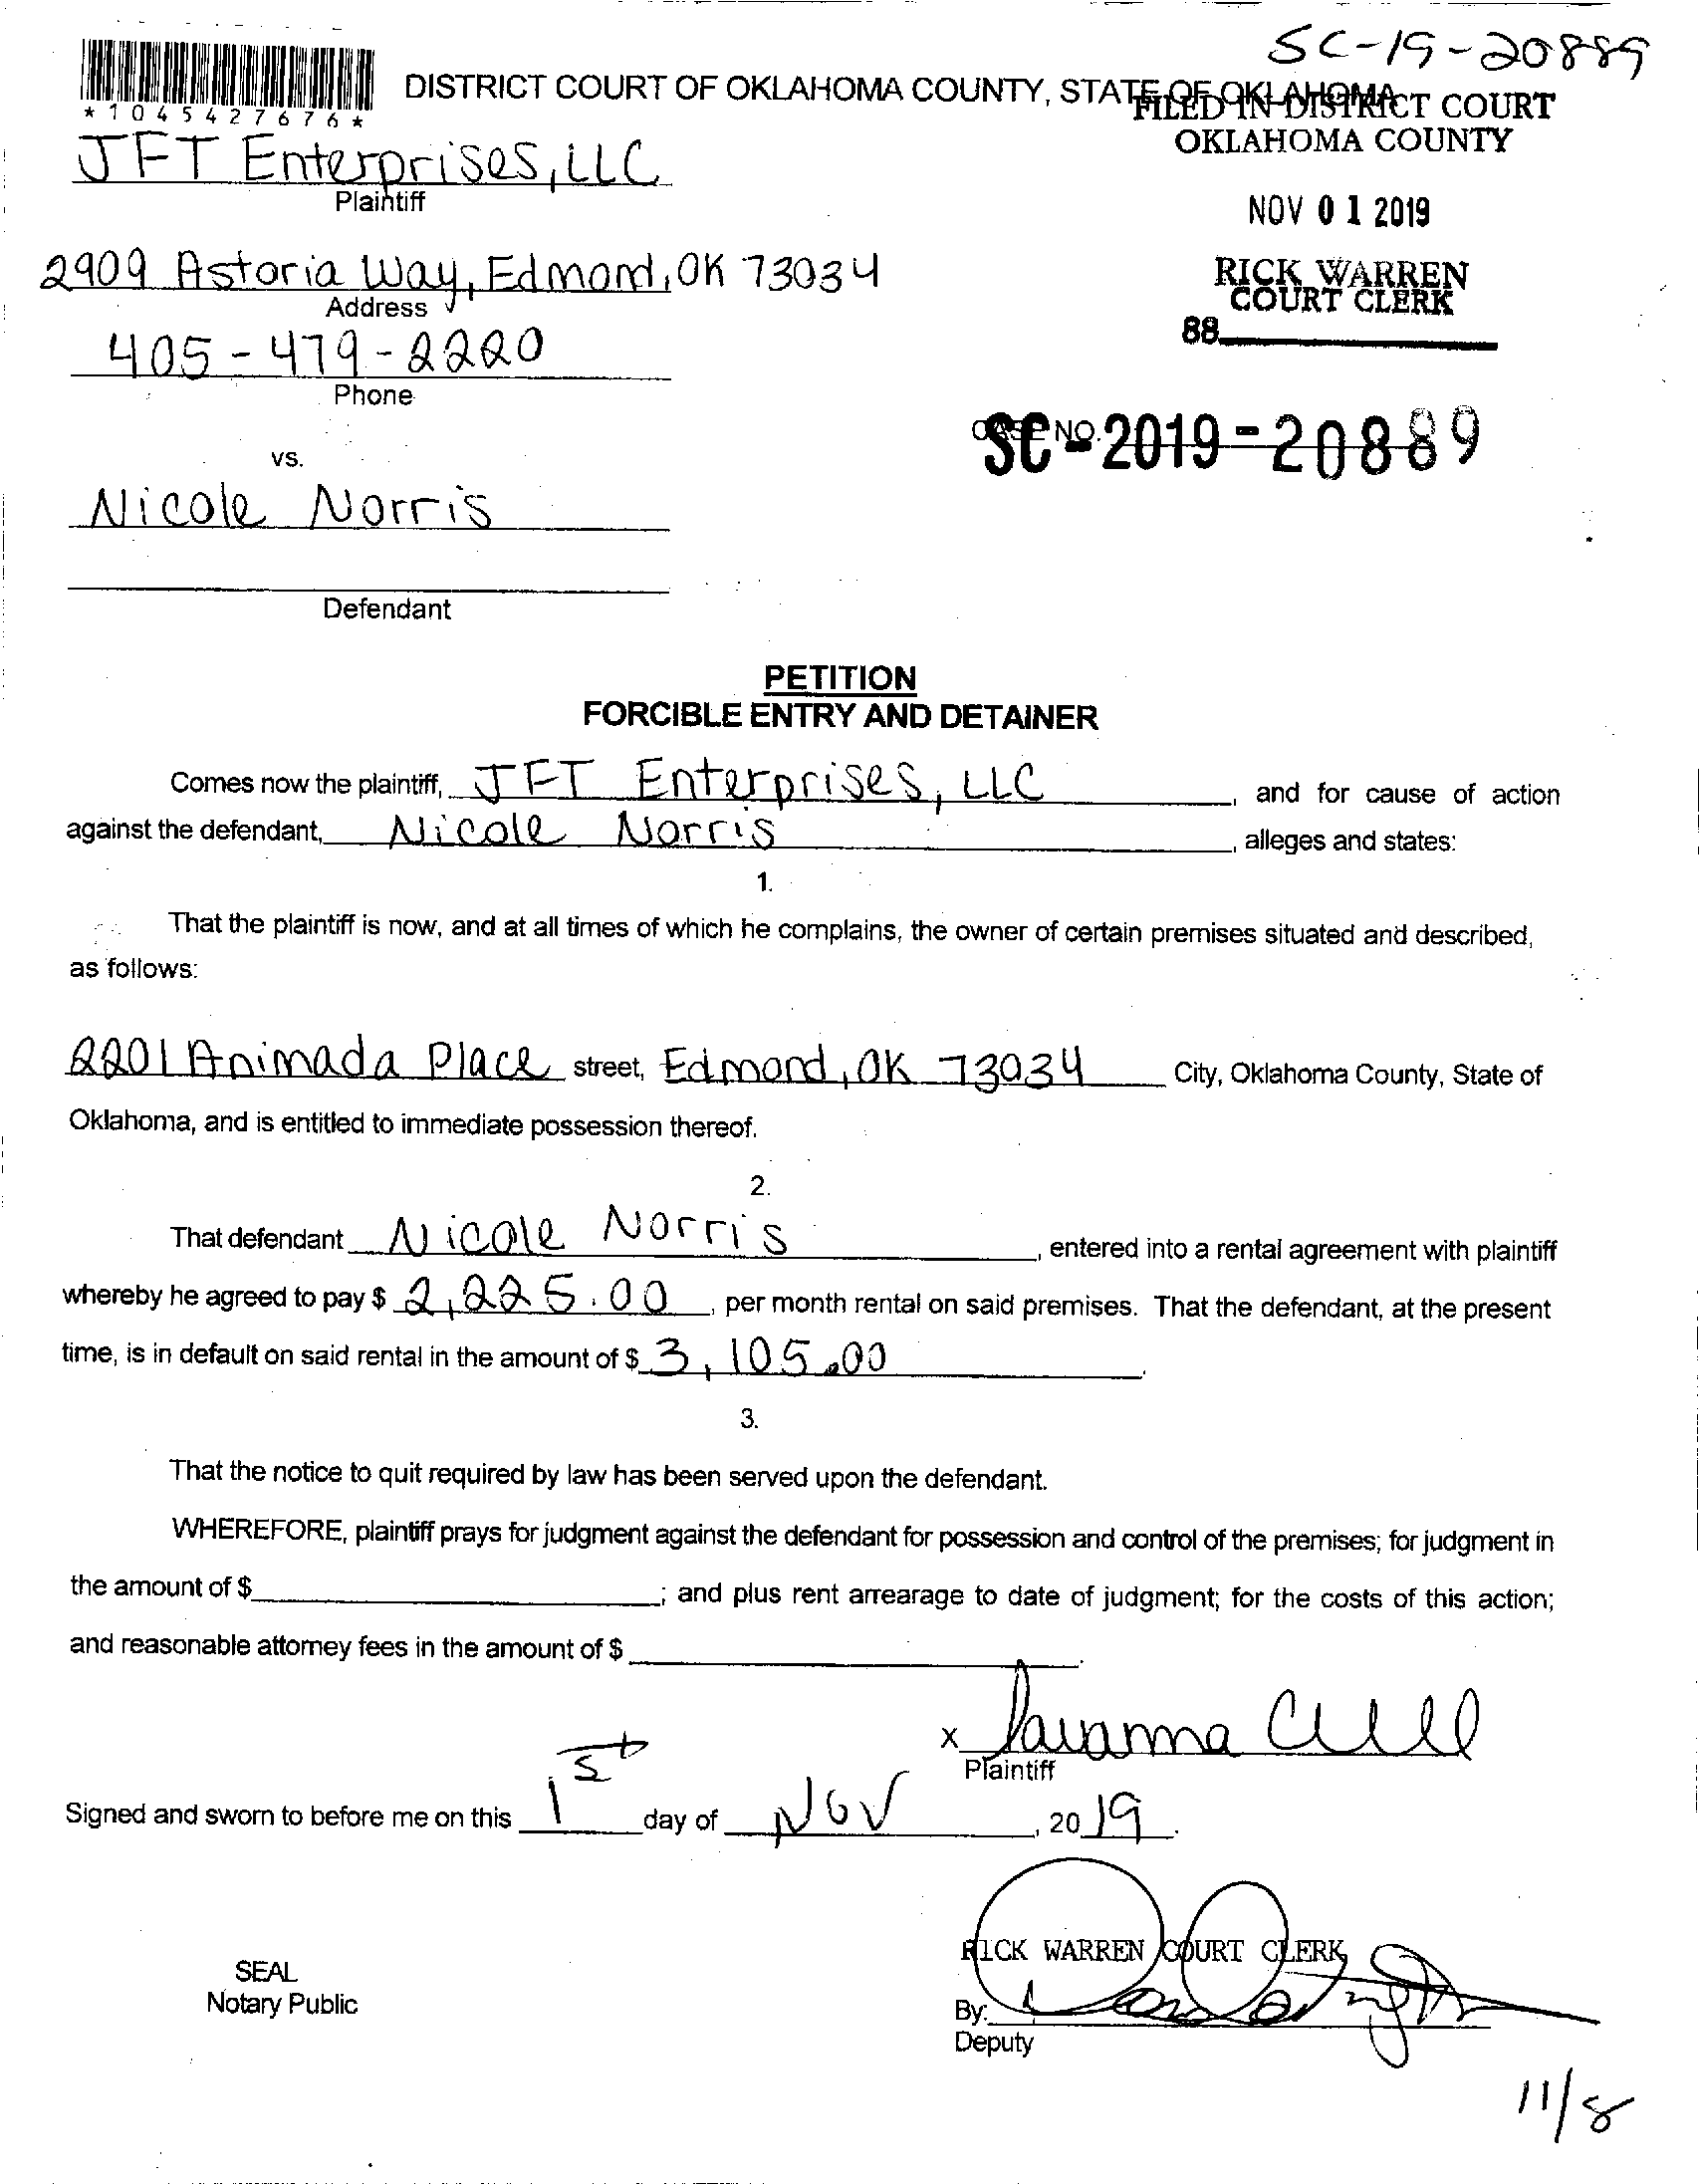 SC-19-20889
*1045427676*
DISTRICT COURT OF OKLAHOMA COUNTY, STATE OF OKLAHOMA
FILED IN DISTRICT COURT
OKLAHOMA COUNTY
JFT Enterprises, LLC
Plaintiff
NOV 01 2019
2909 Astoria Way, Edmond, OK 73034
Address
RICK WARREN
COURT CLERK
88
405-479-2220
Phone
CASE NO.
SC-2019-20889
vs.
Nicole Norris
Defendant
PETITION
FORCIBLE ENTRY AND DETAINER
Comes now the plaintiff, JFT Enterprises, LLC, and for cause of action
against the defendant, Nicole Norris, alleges and states:
1.
That the plaintiff is now, and at all times of which he complains, the owner of certain premises situated and described,
as follows:
2201 Animada Place street, Edmond, OK 73034 City, Oklahoma County, State of
Oklahoma, and is entitled to immediate possession thereof.
2.
That defendant Nicole Norris, entered into a rental agreement with plaintiff
whereby he agreed to pay $ 2,225.00, per month rental on said premises. That the defendant, at the present
time, is in default on said rental in the amount of $ 3,105.00.
3.
That the notice to quit required by law has been served upon the defendant.
WHEREFORE, plaintiff prays for judgment against the defendant for possession and control of the premises; for judgment in
the amount of $ ; and plus rent arrearage to date of judgment; for the costs of this action;
and reasonable attorney fees in the amount of $ .
x Savanna
Plaintiff
Signed and sworn to before me on this 1st day of Nov, 2019.
RICK WARREN COURT CLERK
SEAL
Notary Public
By:
Deputy
11/8